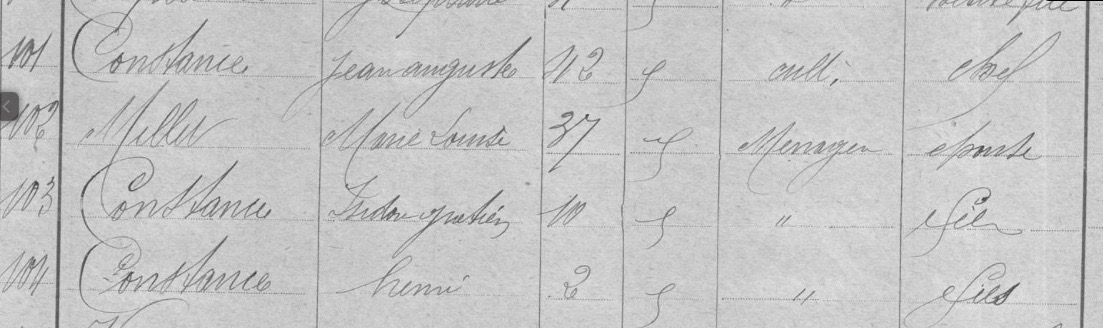 101 Constance Jean auguste 42 f cult, chef
102 Millet Marie Louise 37 f Menagère épouse
103 Constance Isidore gratien 10 f " fils
104 Constance henri 2 f " fils